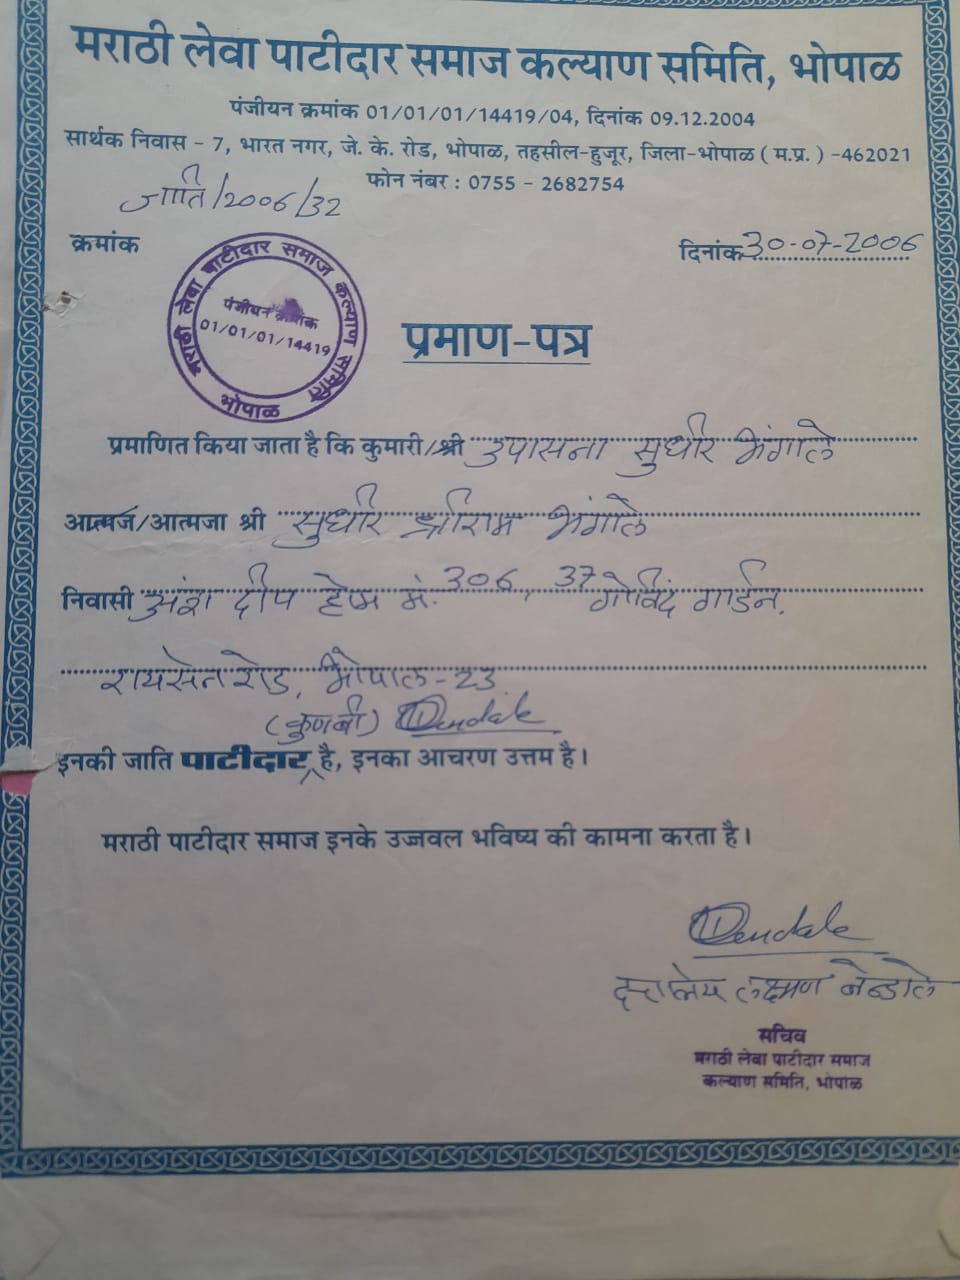 मराठी लेवा पाटीदार समाज कल्याण समिति, भोपाळ
पंजीयन क्रमांक 01/01/01/14419/04, दिनांक 09.12.2004
सार्थक निवास - 7, भारत नगर, जे. के. रोड, भोपाळ, तहसील-हुजूर, जिला-भोपाळ ( म.प्र. ) -462021
फोन नंबर : 0755 - 2682754
जाति/2006/32
क्रमांक
दिनांक 30-07-2006
मराठी लेवा पाटीदार समाज कल्याण समिति
पंजीयन क्रमांक
01/01/01/14419
भोपाळ
प्रमाण-पत्र
प्रमाणित किया जाता है कि कुमारी/श्री उपासना सुधीर भंगाले
आत्मज/आत्मजा श्री सुधीर श्रीराम भंगाले
निवासी दीप 306, 37 गोविंद गार्डन,
रायसेन रोड, भोपाल-23
(कुणबी) Dendale
इनकी जाति पाटीदार है, इनका आचरण उत्तम है।
मराठी पाटीदार समाज इनके उज्जवल भविष्य की कामना करता है।
Dendale
लक्ष्मण
सचिव
मराठी लेवा पाटीदार समाज
कल्याण समिति, भोपाळ